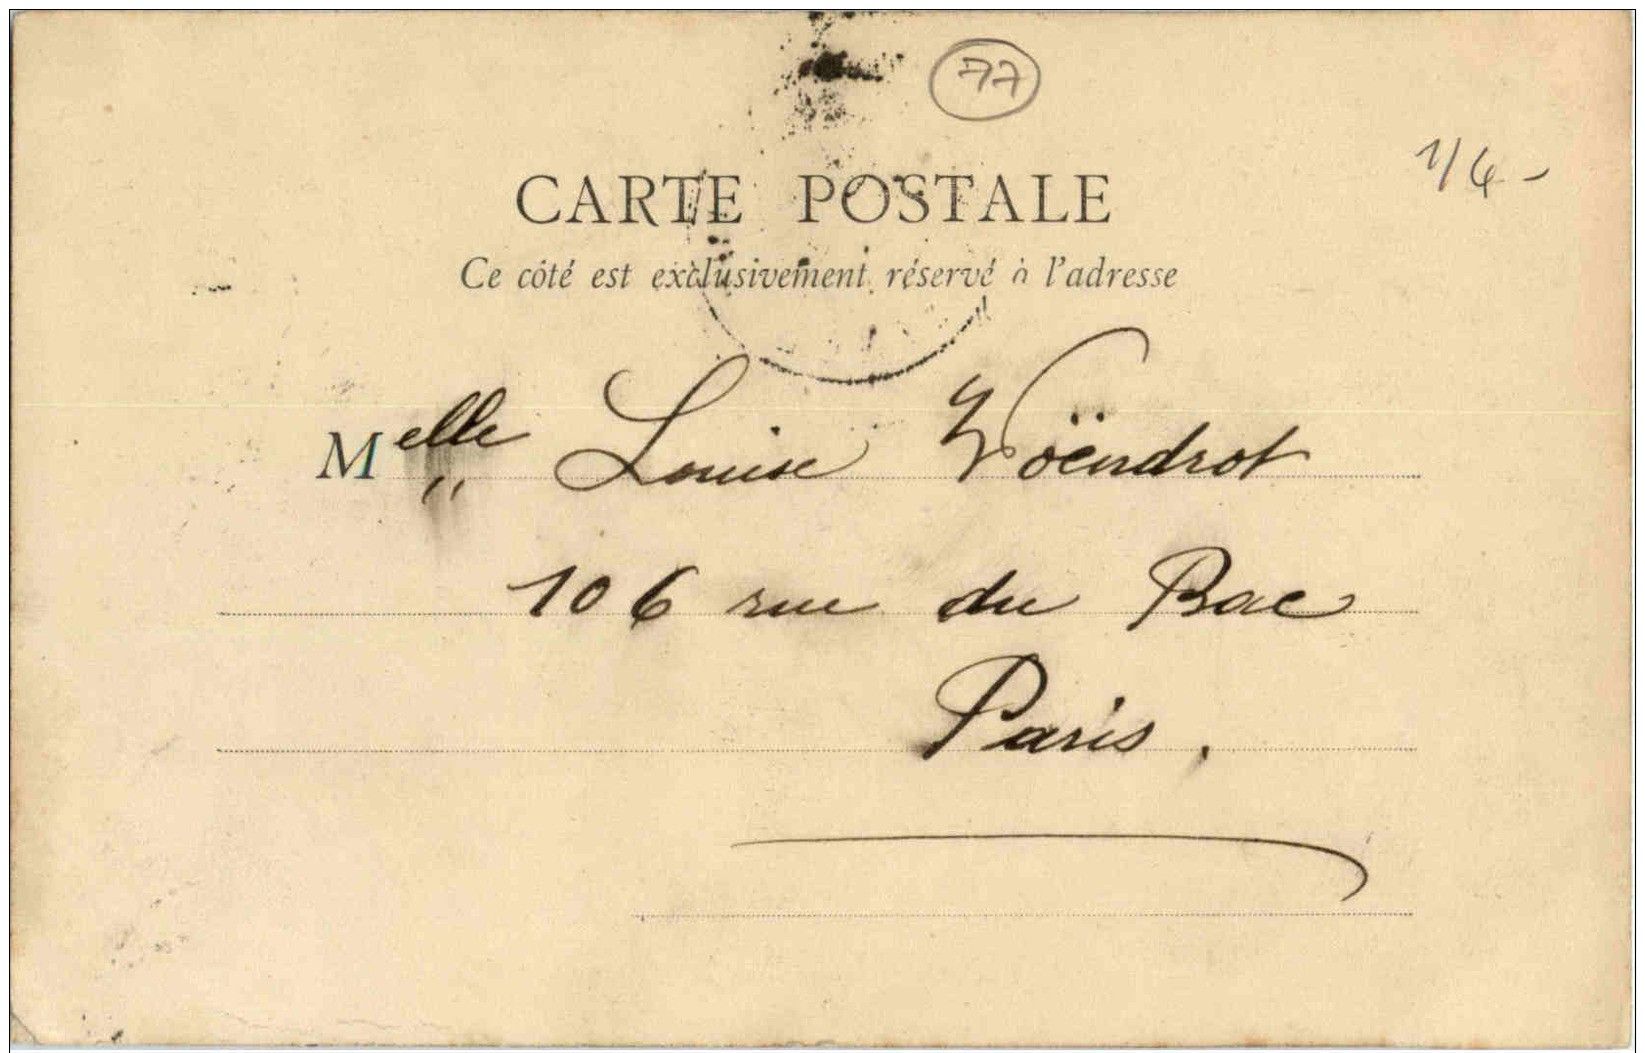 77
1/4-
CARTE POSTALE
Ce côté est exclusivement réservé à l'adresse
Melle Louise Woëndrot
106 rue du Bac
Paris.